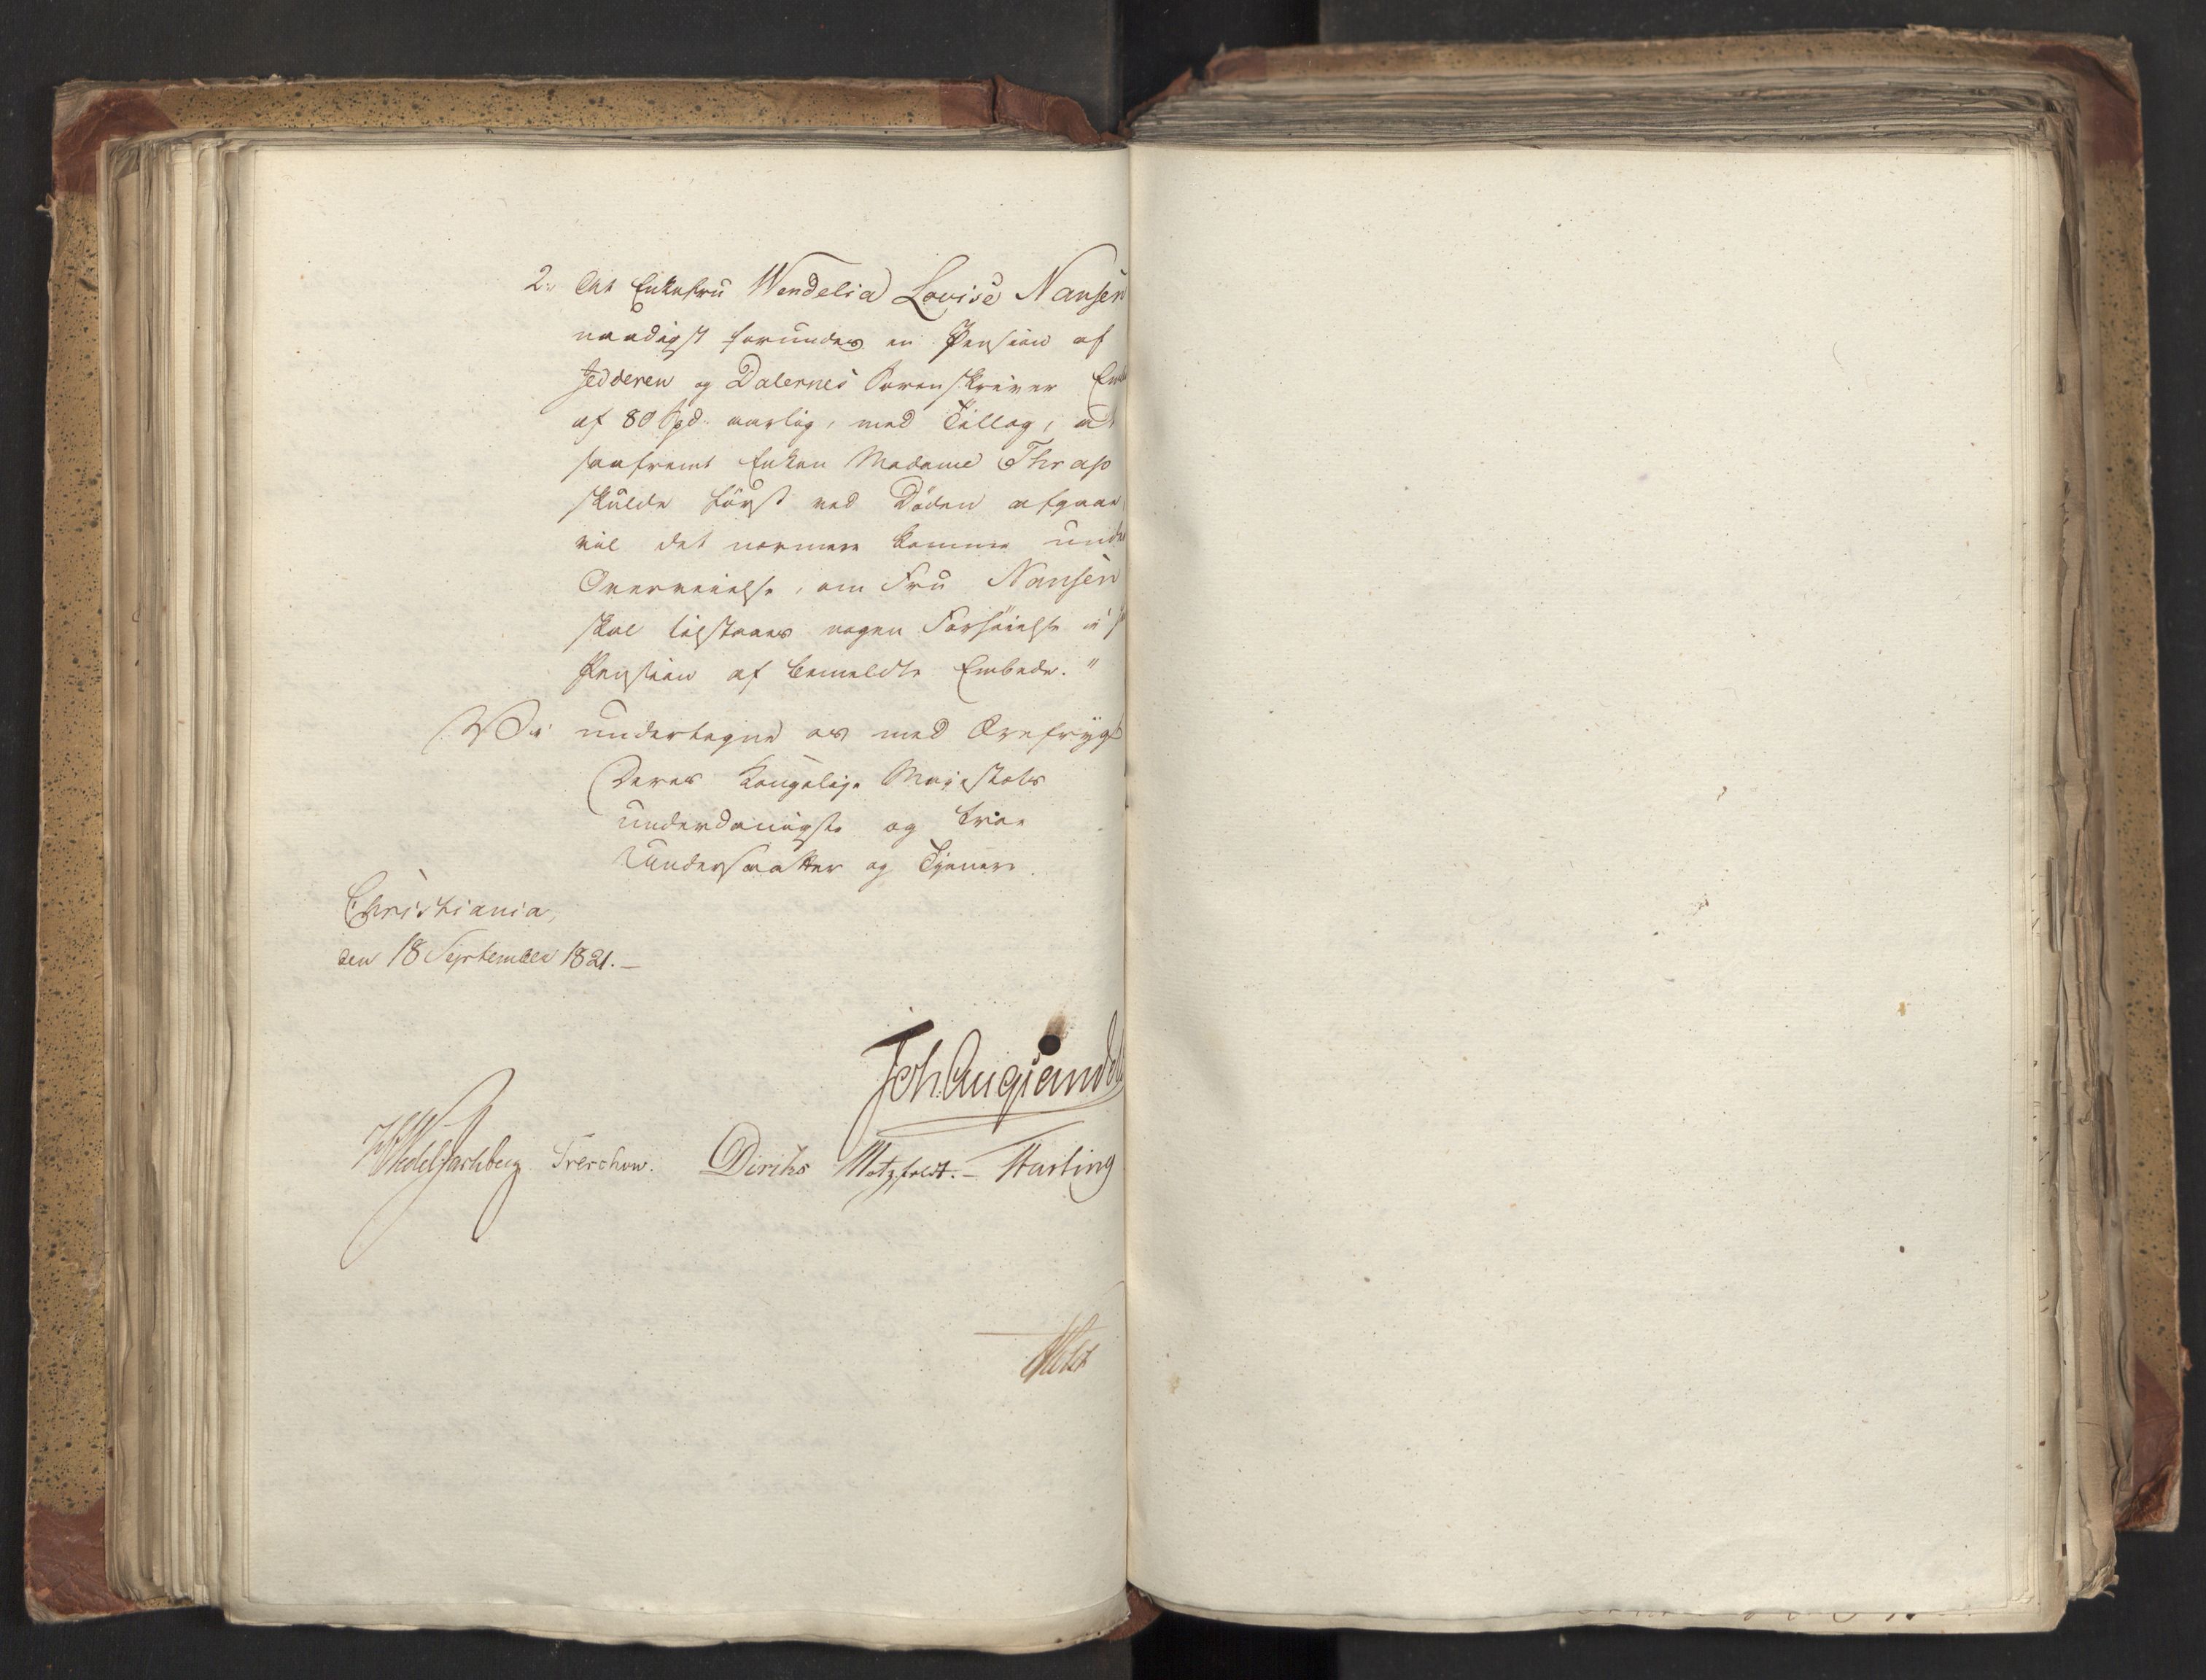 2., At Enkefru Wendelia Lovise Nansen
naadigst forundes en Pension af
Jedderen og Dalernes Sorenskriver Em
af 80 Spd. aarlig, med Tillæg, at
saafremt Enken Madame Thrap
skulde først ved Døden afgaae,
vil det nærmere komme unde
Overveielse, om Fru Nansen
skal tilstaaes nogen Forhøielse i
Pension af bemeldte Embede."
Vi undertegne os med Ærefrygt
Deres Kongelige Majestæts
underdanigste og troe
Undersaatter og Tjenere.
Christiania,
den 18 September 1821.-
Joh. Aug: Sandels
HWedel Jarlsberg Treschow. Diriks Motzfeldt.- Fasting
Holst